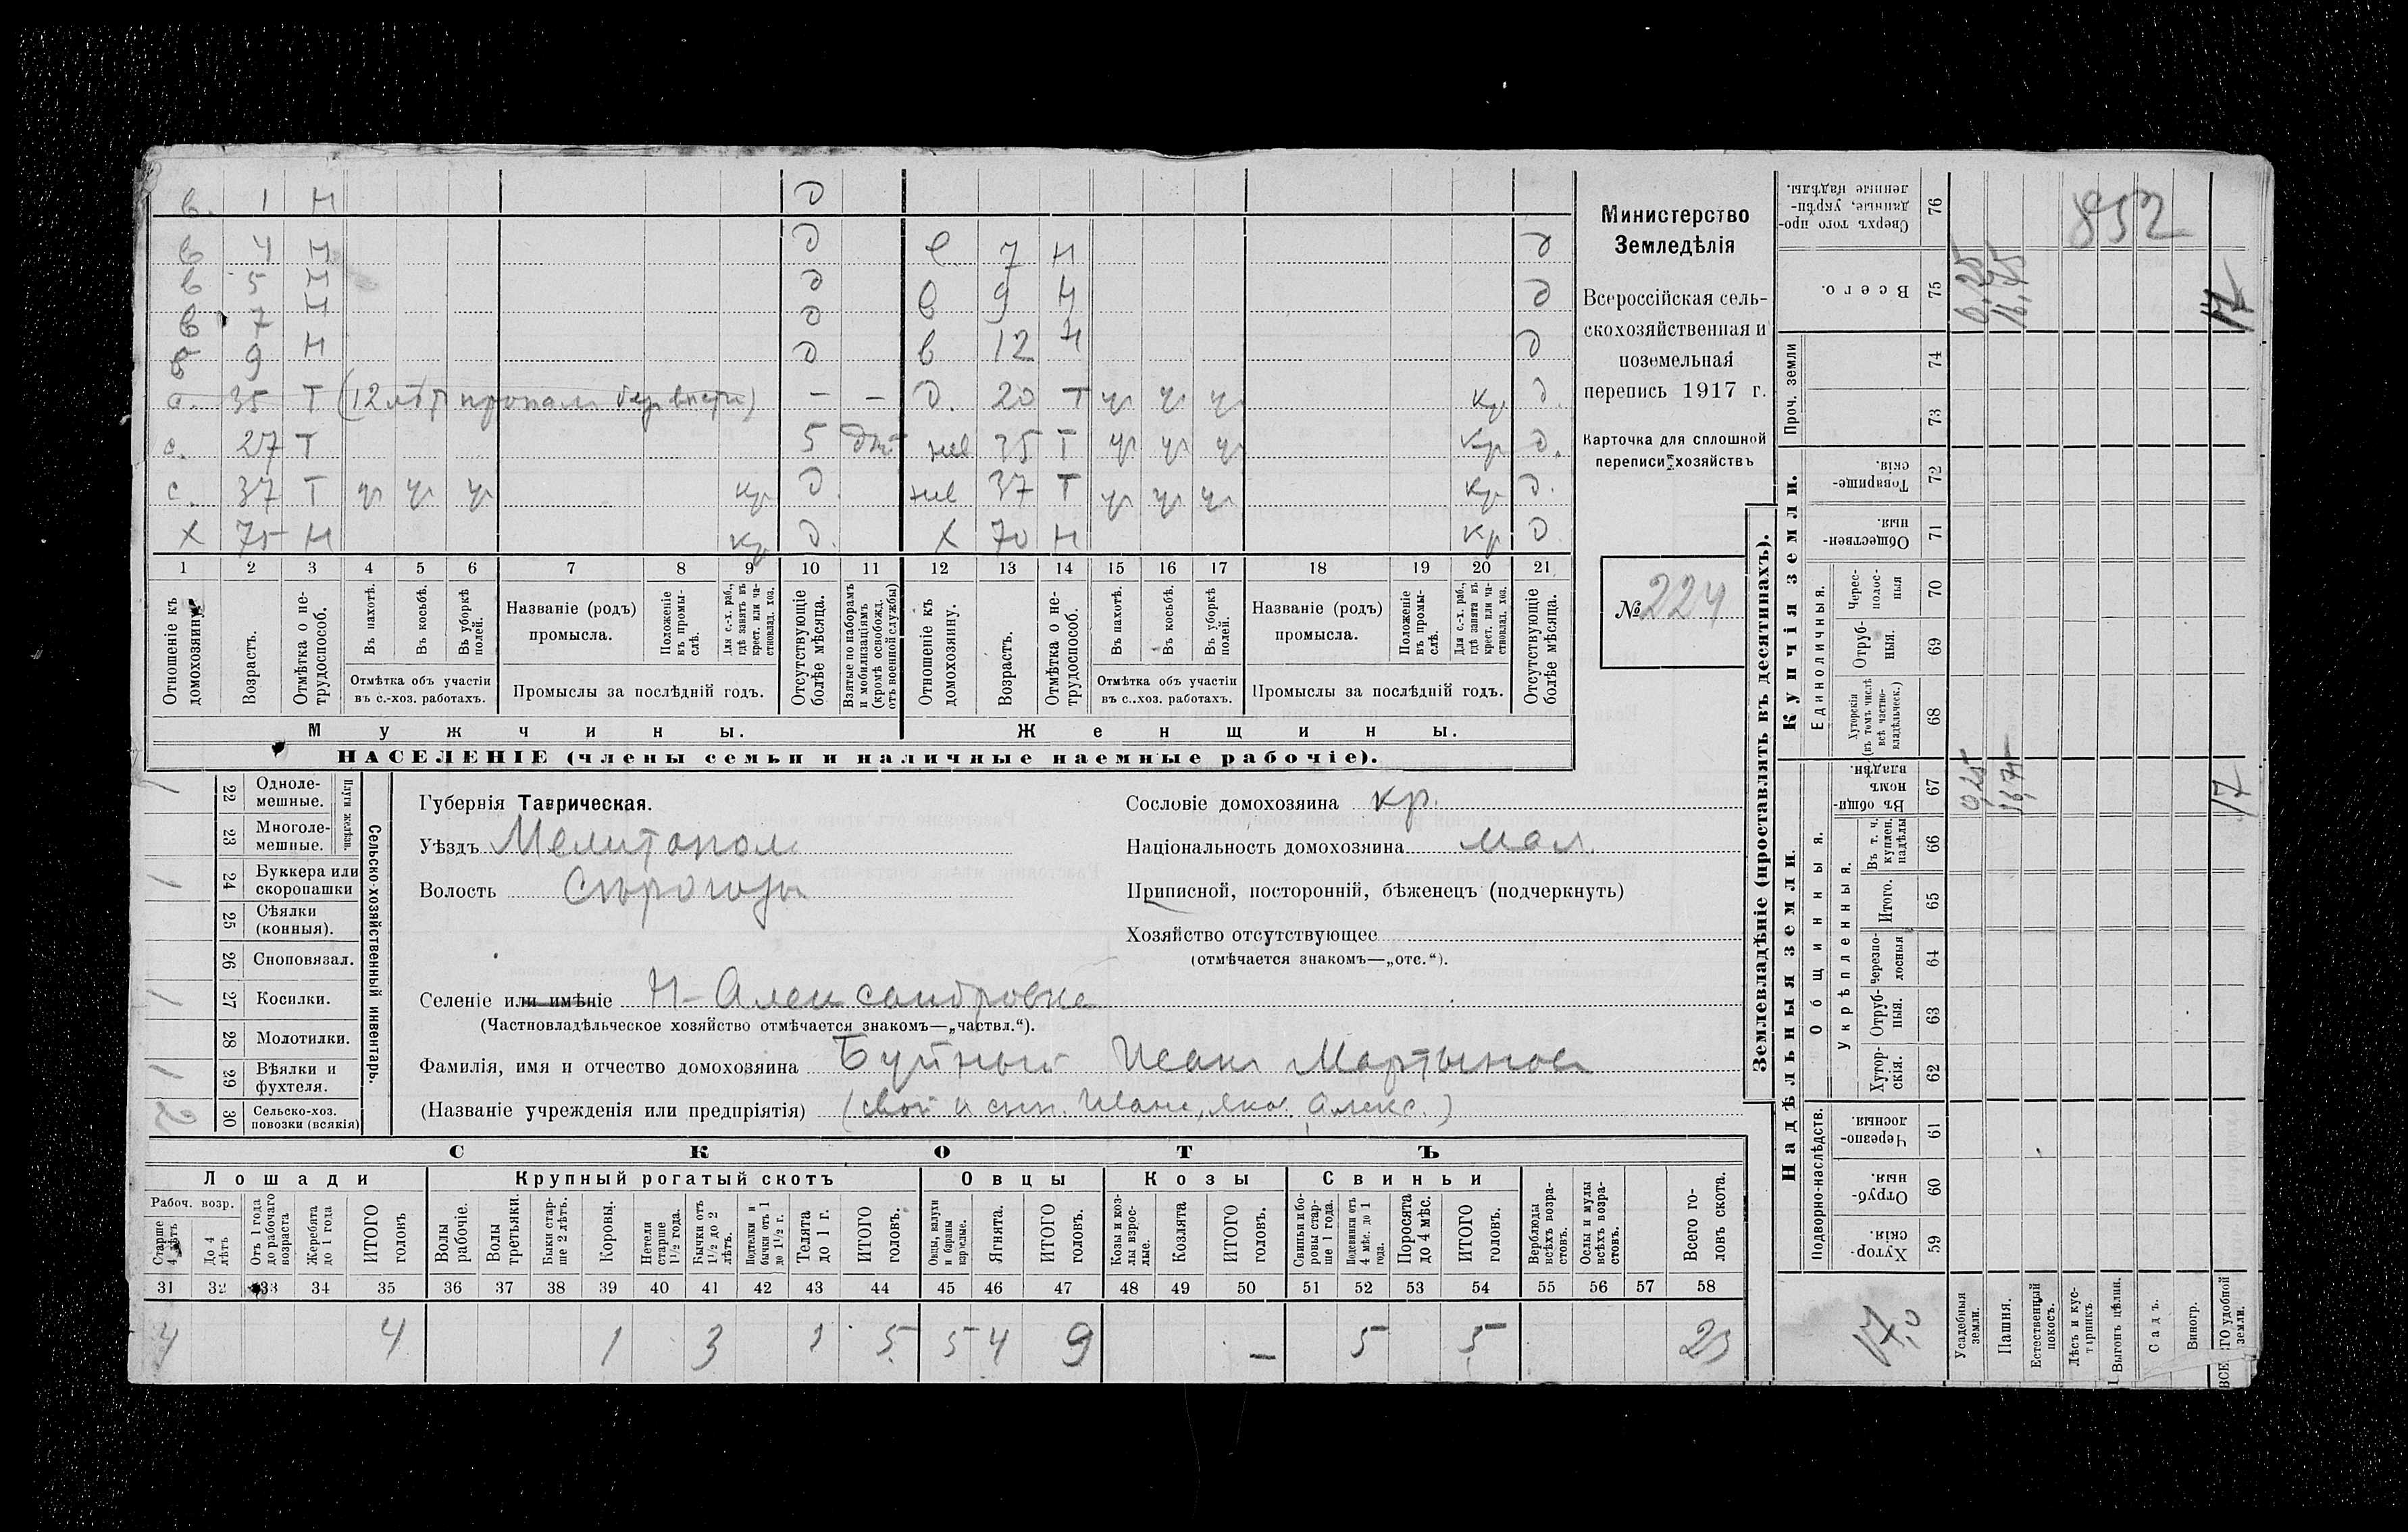 в. 1 Н д
в 4 Н д в 7 Н д
в 5 Н д в 9 Н д
в 7 Н д в 12 Н д
в 9 Н д
с. 35 Т (12 лѣт пропал без вести) — — д. 20 Т уч уч уч кр д.
с. 27 Т 5 нев 35 Т уч уч уч кр д.
с. 37 Т уч уч уч кр д. нев 37 Т уч уч уч кр д.
Х 75 Н кр д. Х 70 Н кр д
1 2 3 4 5 6 7 8 9 10 11 12 13 14 15 16 17 18 19 20 21
Отношеніе къ домохозяину.
Возрастъ.
Отмѣтка о нетрудоспособ.
Въ пахотѣ.
Въ косьбѣ.
Въ уборкѣ полей.
Отмѣтка объ участіи
въ с.-хоз. работахъ.
Названіе (родъ)
промысла.
Положеніе въ промыслѣ.
Для с.-х. раб., гдѣ занятъ въ крест. или частновлад. хоз.
Промыслы за послѣдній годъ.
Отсутствующіе болѣе мѣсяца.
Взятые по наборамъ и мобилизаціямъ (кромѣ освобожд. отъ военной службы)
Отношеніе къ домохозяину.
Возрастъ.
Отмѣтка о нетрудоспособ.
Въ пахотѣ.
Въ косьбѣ.
Въ уборкѣ полей.
Отмѣтка объ участіи
въ с..хоз. работахъ.
Названіе (родъ)
промысла.
Положеніе въ промыслѣ.
Для с.-х. раб., гдѣ занята въ крест. или частновлад. хоз.
Промыслы за послѣдній годъ.
Отсутствующіе болѣе мѣсяца.
Мужчины. Женщины.
НАСЕЛЕНІЕ (члены семьи и наличные наемные рабочіе).
Министерство
Земледѣлія
Всероссійская сель-
скохозяйственная и
поземельная
перепись 1917 г.
Карточка для сплошной
переписи хозяйствъ
№ 224
Сельско-хозяйственный инвентарь.
Плуги желѣзн.
1 22 Одноле-
мешные.
23 Многоле-
мешные.
1 24 Буккера или
скоропашки
25 Сѣялки
(конныя).
26 Сноповязал.
1 27 Косилки.
28 Молотилки.
1 29 Вѣялки и
фухтеля.
2 30 Сельско-хоз.
повозки (всякія)
Губернія Таврическая.
Уѣздъ Мелитопол
Волость Сѣрогозы
Селеніе или имѣніе Н-Александровка
(Частновладѣльческое хозяйство отмѣчается знакомъ—„частвл.“).
Фамилія, имя и отчество домохозяина Буйный Иван Мартынов
(Названіе учрежденія или предпріятія) (свой и сын. Иван, Яков. Алекс.)
Сословіе домохозяина кр.
Національность домохозяина мал.
Приписной, посторонній, бѣженецъ (подчеркнуть)
Хозяйство отсутствующее
(отмѣчается знакомъ—„отс.“).
СКОТЪ
Лошади Крупный рогатый скотъ Овцы Козы Свиньи
Рабоч. возр.
Старше 4 лѣтъ
До 4 лѣтъ
Отъ 1 года до рабочаго возраста
Жеребята до 1 года
ИТОГО головъ
Волы рабочіе.
Волы третьяки.
Быки старше 2 лѣтъ.
Коровы.
Нетели старше 1½ года.
Бычки отъ 1½ до 2 лѣтъ.
Подтелки и бычки отъ 1 до 1½ г.
Телята до 1 г.
ИТОГО головъ.
Овцы, валухи и бараны взрослые.
Ягнята.
ИТОГО головъ.
Козы и козлы взрослые.
Козлята
ИТОГО головъ.
Свиньи и боровы старше 1 года.
Подсвинки отъ 4 мѣс. до 1 года.
Поросята до 4 мѣс.
ИТОГО головъ.
Верблюды всѣхъ возрастовъ.
Ослы и мулы всѣхъ возрастовъ.
Всего головъ скота.
31 32 33 34 35 36 37 38 39 40 41 42 43 44 45 46 47 48 49 50 51 52 53 54 55 56 57 58
4 4 1 3 1 5 5 4 9 — 5 5 23
Землевладѣніе (проставлять въ десятинахъ).
Надѣльныя земли. Купчія земли. Проч. земли
Подворно-наслѣдств.
Общинныя.
Укрѣпленныя.
Единоличныя.
Хуторскія. 59
Отрубныя. 60
Черезполосныя 61
Хуторскія. 62
Отрубныя. 63
Черезполосныя 64
Итого. 65
Въ т. ч. куплен. надѣлы 66
Въ общинномъ владѣн. 67 0,25 16,75 17
Хуторскія (въ томъ числѣ всѣ частновладѣльческ.) 68
Отрубныя. 69
Чересполосныя 70
Общественныя. 71
Товарищескія. 72
73
74
Всего. 75 0,25 16,75 17
Сверхъ того проданные, укрѣпленные надѣлы. 76
852
17,0
Усадебныя земли.
Пашня.
Естественный покосъ.
Лѣсъ и кустарникъ
Выгонъ цѣлин.
Садъ.
Виногр.
ВСЕГО удобной земли.